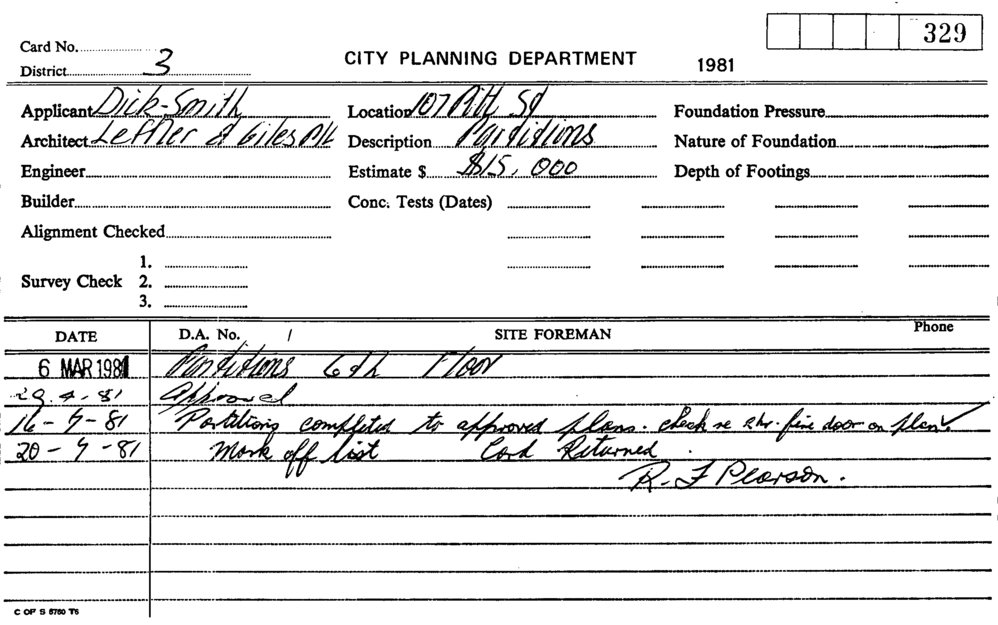 329
Card No.
District 3
CITY PLANNING DEPARTMENT 1981
Applicant Dick-Smith Location 107 Pitt St Foundation Pressure
Architect Leffler & Giles P/L Description Partitions Nature of Foundation
Engineer Estimate $ $15,000 Depth of Footings
Builder Conc. Tests (Dates)
Alignment Checked
1.
Survey Check 2.
3.
DATE D.A. No. / SITE FOREMAN Phone
6 MAR 1981 Partitions 6th Floor
29-4-81 Approved
16-7-81 Partitions completed to approved plans. check re 2hr. fire door on plan ✓
20-7-81 Mark off list Card Returned.
R. F Pearson.
C OF S 8760 T6